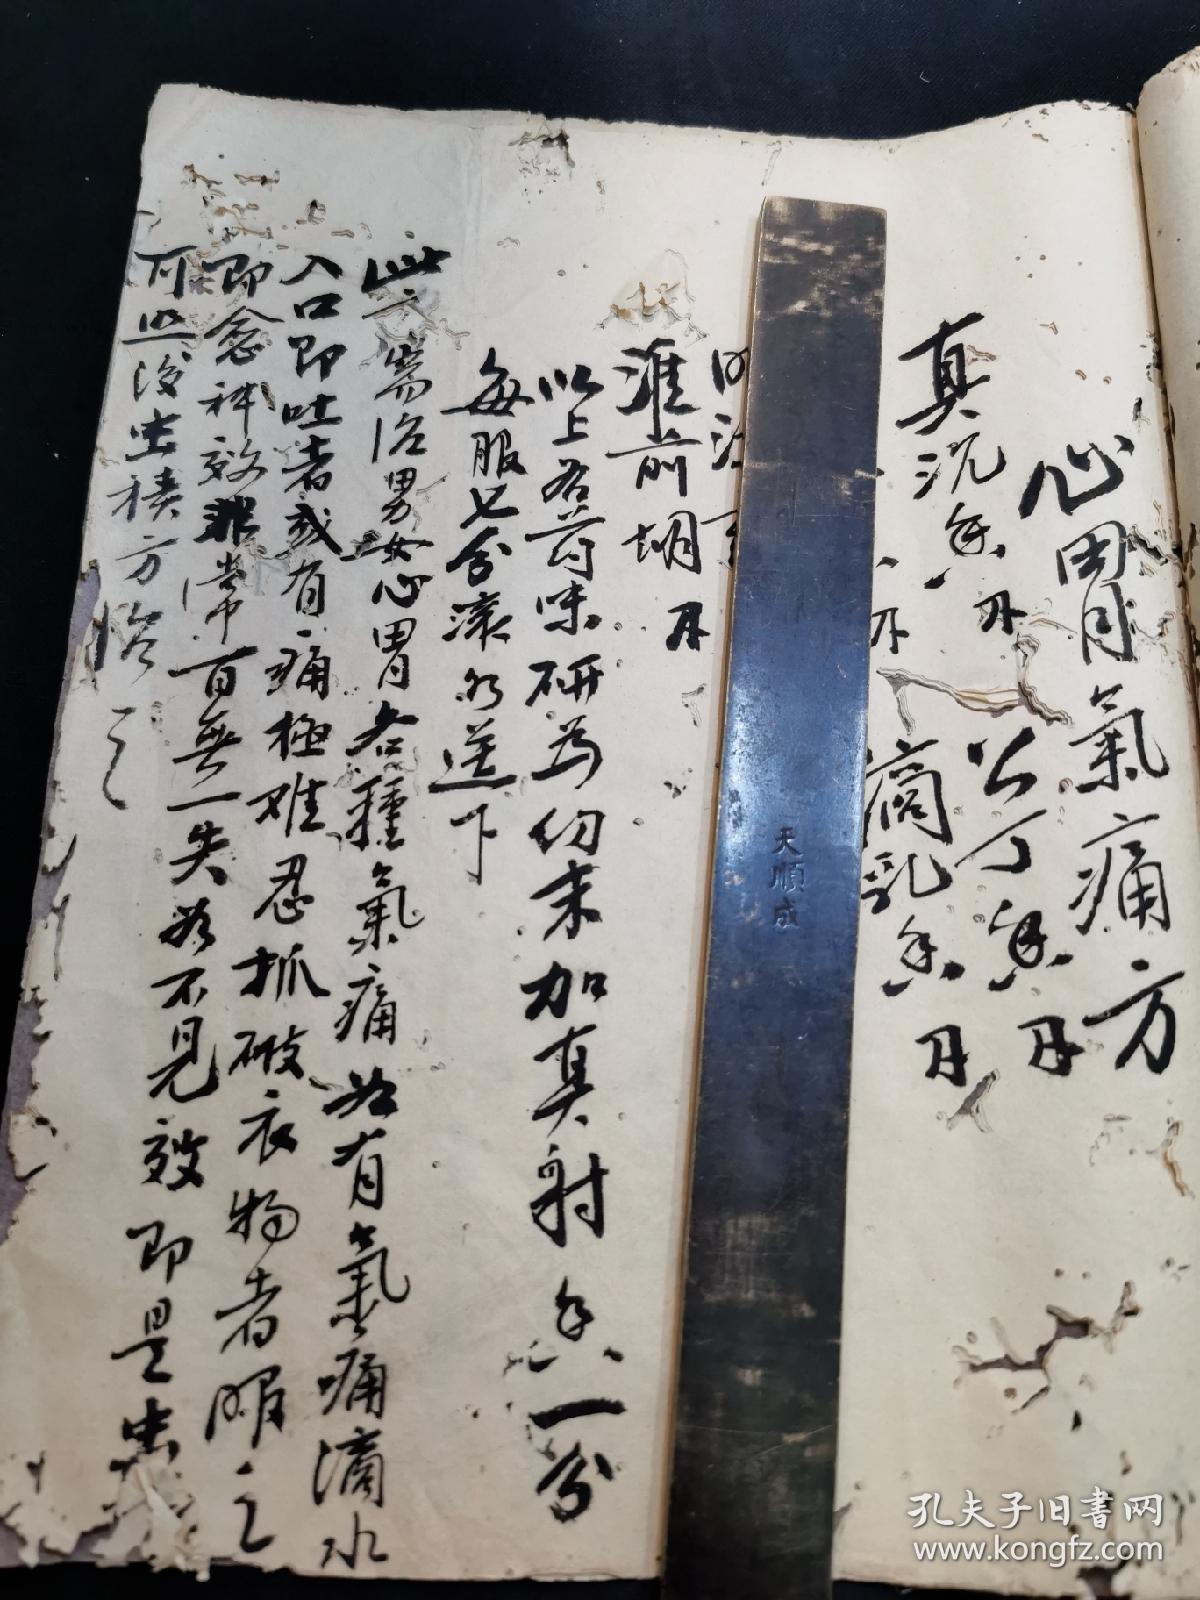 心胃氣痛方
真沉香 公丁香
滴乳香
淮前胡
以上各药味研為仞末加真射香一分
每服七分滚水送下
此方耑治男女心胃各種氣痛如有氣痛滴水
入口即吐者或有痛極难忍抓破衣物者服之
即愈神效非常百無一失如不見效即是虫
可照後虫積方治之
天順成
孔夫子旧书网
www.kongfz.com